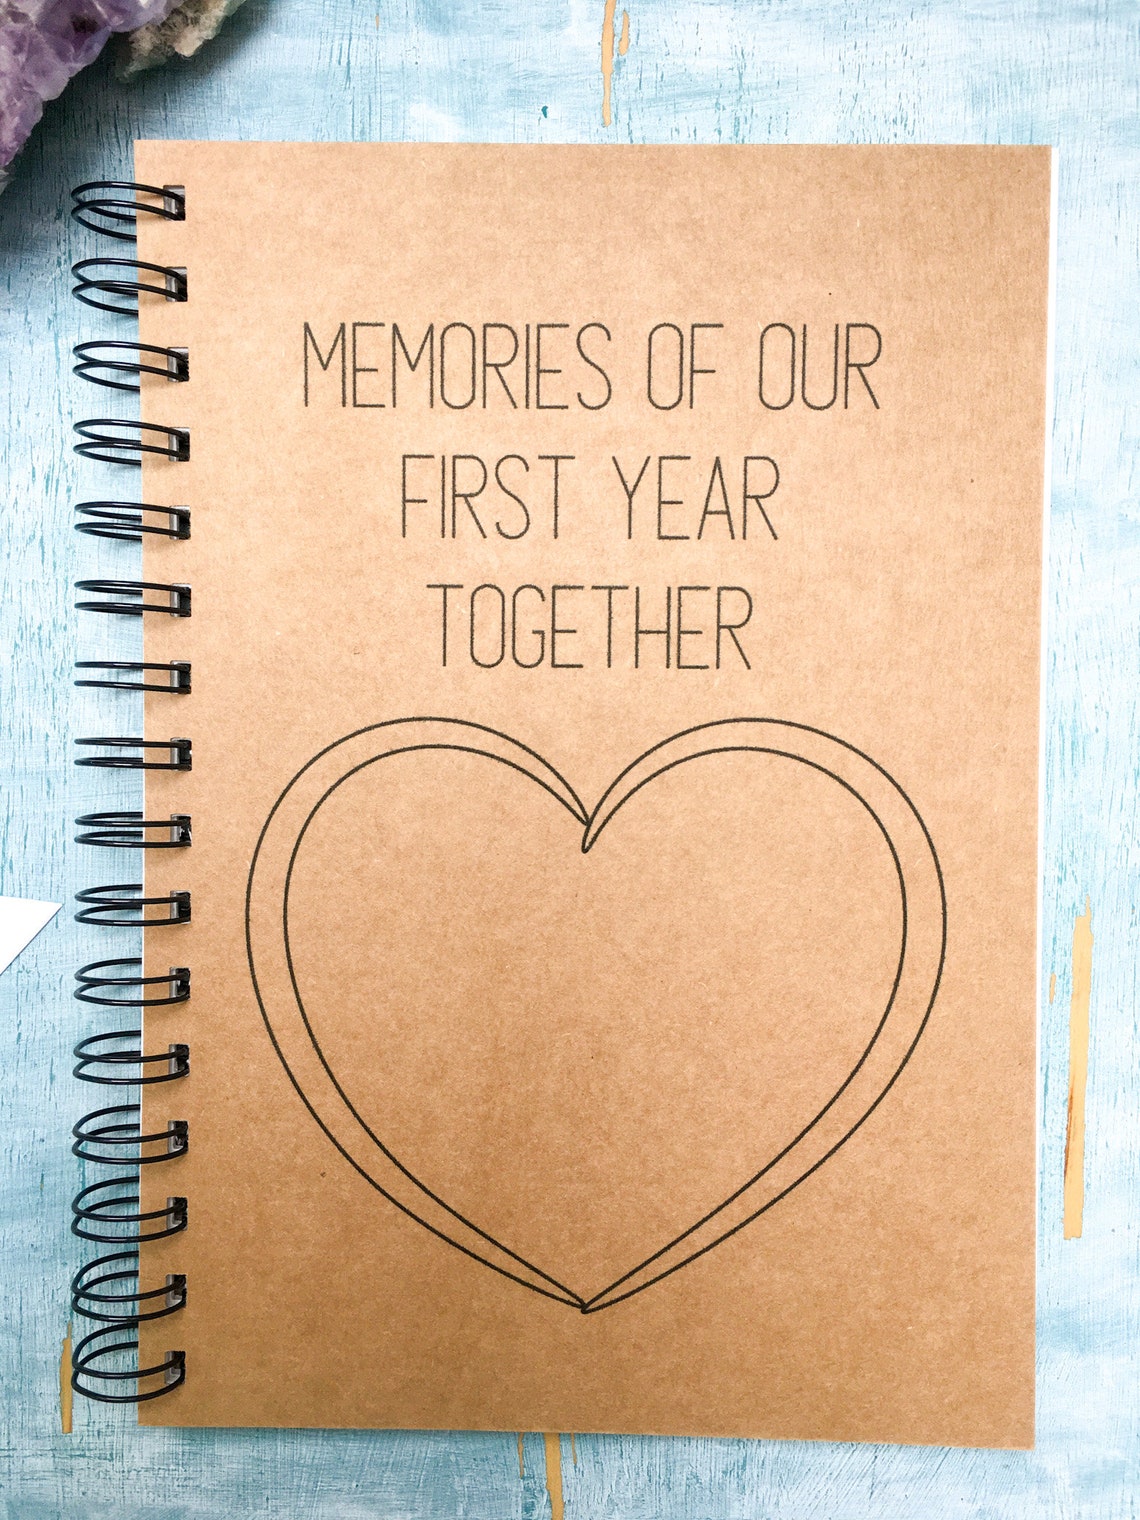 MEMORIES OF OUR
FIRST YEAR
TOGETHER